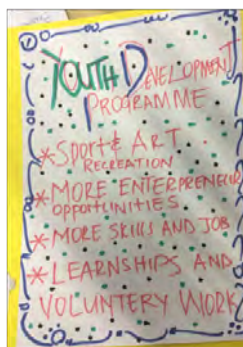 YOUTH DEVELOPMENT
PROGRAMME
* SPORT & ART
RECREATION
* MORE ENTERPRENEUR
OPPORTUNITIES
* MORE SKILLS AND JOB
* LEARNSHIPS AND
VOLUNTERY WORK